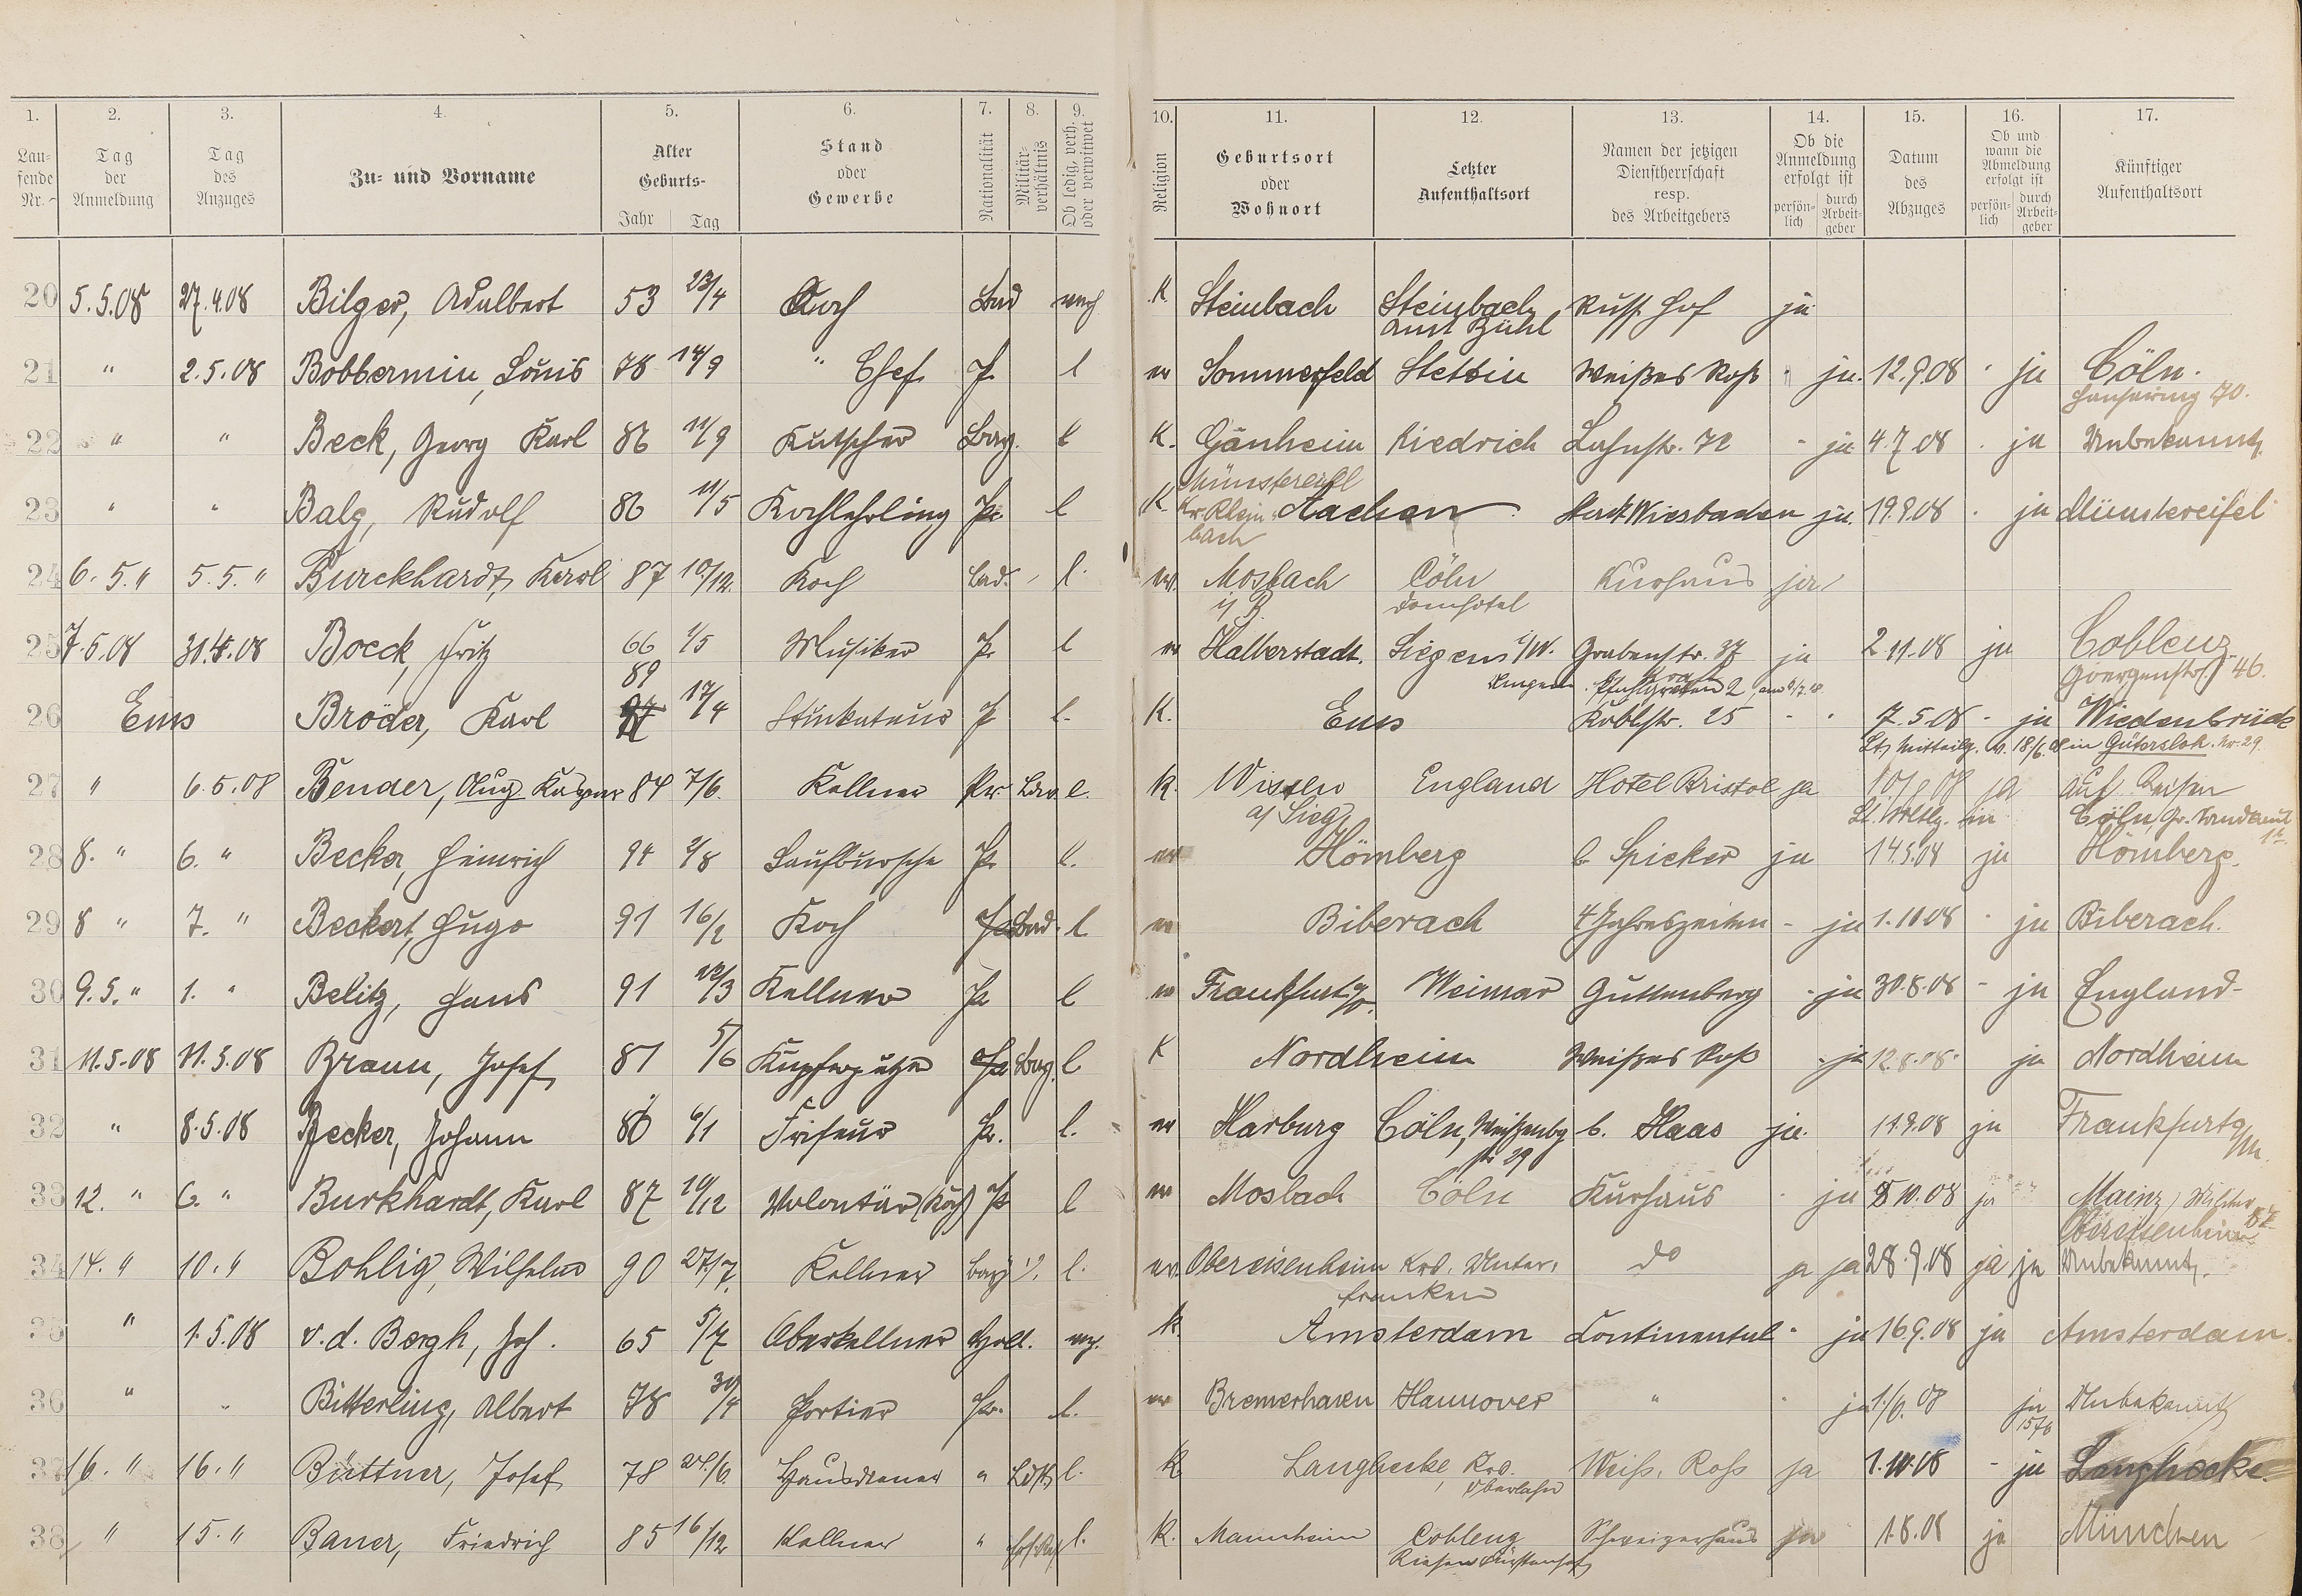 1. 2. 3. 4. 5. 6. 7. 8. 9. 10. 11. 12. 13. 14. 15. 16. 17.
Lau-
fende
Nr.
Tag
der
Anmeldung
Tag
des
Anzuges
Zu- und Vorname
Alter
Geburts-
Jahr Tag
Stand
oder
Gewerbe
Nationalität
Militär-
verhältnis
Ob ledig, verh.
oder verwitwet
Religion
Geburtsort
oder
Wohnort
Letzter
Aufenthaltsort
Namen der jetzigen
Dienstherrschaft
resp.
des Arbeitgebers
Ob die
Anmeldung
erfolgt ist
persön-
lich
durch
Arbeit-
geber
Datum
des
Abzuges
Ob und
wann die
Abmeldung
erfolgt ist
persön-
lich
durch
Arbeit-
geber
Künftiger
Aufenthaltsort
20 5.5.08 27.4.08 Bilger, Adalbert 53 23/4 Koch Bad K Steinbach Steinbach Russ. Hof ja
Amt Bühl
21 " 2.5.08 Bobbermin, Louis 78 14/9 " Chef Pr. l ev Sommerfeld Stettin Weißes Roß - ja. 12.9.08 - ja Cöln.
Hansaring 70.
22 " " Beck, Georg Karl 86 11/9 Kutscher Bay. l K. Gänheim Kiedrich Lahnstr. 72 - ja 4.7.08 - ja Unbekannt.
Münstereifel
23 " " Balg, Rudolf 86 11/5 Kochlehrling Pr. l K. Kr. Rhein- Aachen Stadt Wiesbaden ja. 19.9.08 . ja Münstereifel
bach
24 6.5. " 5.5. " Burckhardt, Karl 87 10/12. Koch Bad. l. ev. Mosbach Cöln Kurhaus ja
i/B. Domhotel
25 7.5.08 30.4.08 Boeck, Fritz 66 1/5 Musiker Pr l ev Halberstadt. Siegen i/W. Grabenstr. 37 ja 2.11.08 ja Coblenz
Görgenstr. 46.
89
26 Ems Bröder, Karl 17/4 Stukateur P l. K. Ems Koblstr. 25 - - 7.5.08 - ja Wiedenbrück
Lt. Mitteilg. v. 18/6.08 in Gütersloh. Nr. 29.
27 " 6.5.08 Bender, Aug. Kaspar 84 7/6. Kellner Pr. l. K. Wissen England Hotel Bristol ja ja auf Reisen
a/Sieg Cöln, Gr.
28 8. " 6. " Becker, Heinrich 94 2/8 Laufbursche Pr l. ev Hömberg b. Spicker ja 14.5.08 ja Hömberg.
29 8 " 7. " Beckert, Hugo 91 16/2 Koch Bad. l. ev Biberach 4 Jahreszeiten - ja 1.10.08 - ja Biberach.
30 9.5. " 1. " Belitz, Hans 91 22/3 Kellner Pr l ev Frankfurt a/O. Weimar Guttenberg - ja 30.8.08 - ja England
31 11.5.08 11.5.08 Braun, Josef 81 5/6 Kupferputzer Bay. l K Nordheim Weißes Roß - ja 12.8.08 ja Nordheim
32 " 8.5.08 Becker, Johann 80 6/1 Friseur Pr. l. ev Harburg Cöln, Weißenbg b. Haas ja. 11.9.08 ja Frankfurt a/M.
str 29
33 12. " 6. " Burkhardt, Karl 87 10/12 Volontär (Koch) Pr l ev Mosbach Cöln Kurhaus - ja 8.10.08 ja Mainz, Militär
Obereisenheim
34 14. " 10. " Bohlig, Wilhelm 90 27/7. Kellner Bay l. ev. Obereisenheim Krs. Unter- do ja ja 28.9.08 ja ja Unbekannt.
franken
35 " 1.5.08 v. d. Bergh, Joh. 65 5/7 Oberkellner Holl. K. Amsterdam Continental - ja 16.9.08 ja Amsterdam.
36 " " Bitterling, Albert 78 30/4 Portier Pr. l. ev Bremerhaven Hannover " - ja 1./6.08 ja Unbekannt
37 16. " 16. " Büttner, Josef 78 Hausdiener " l. K Langhecke, Krs. Weiß. Roß ja 1.10.08 - ja Langhecke
Oberlahn
38 " 15. " Bauer, Friedrich 85 16/12 Kellner " l. K. Mannheim Coblenz Schweizerhaus ja 1.8.08 ja München
Riesen Fürstenhof